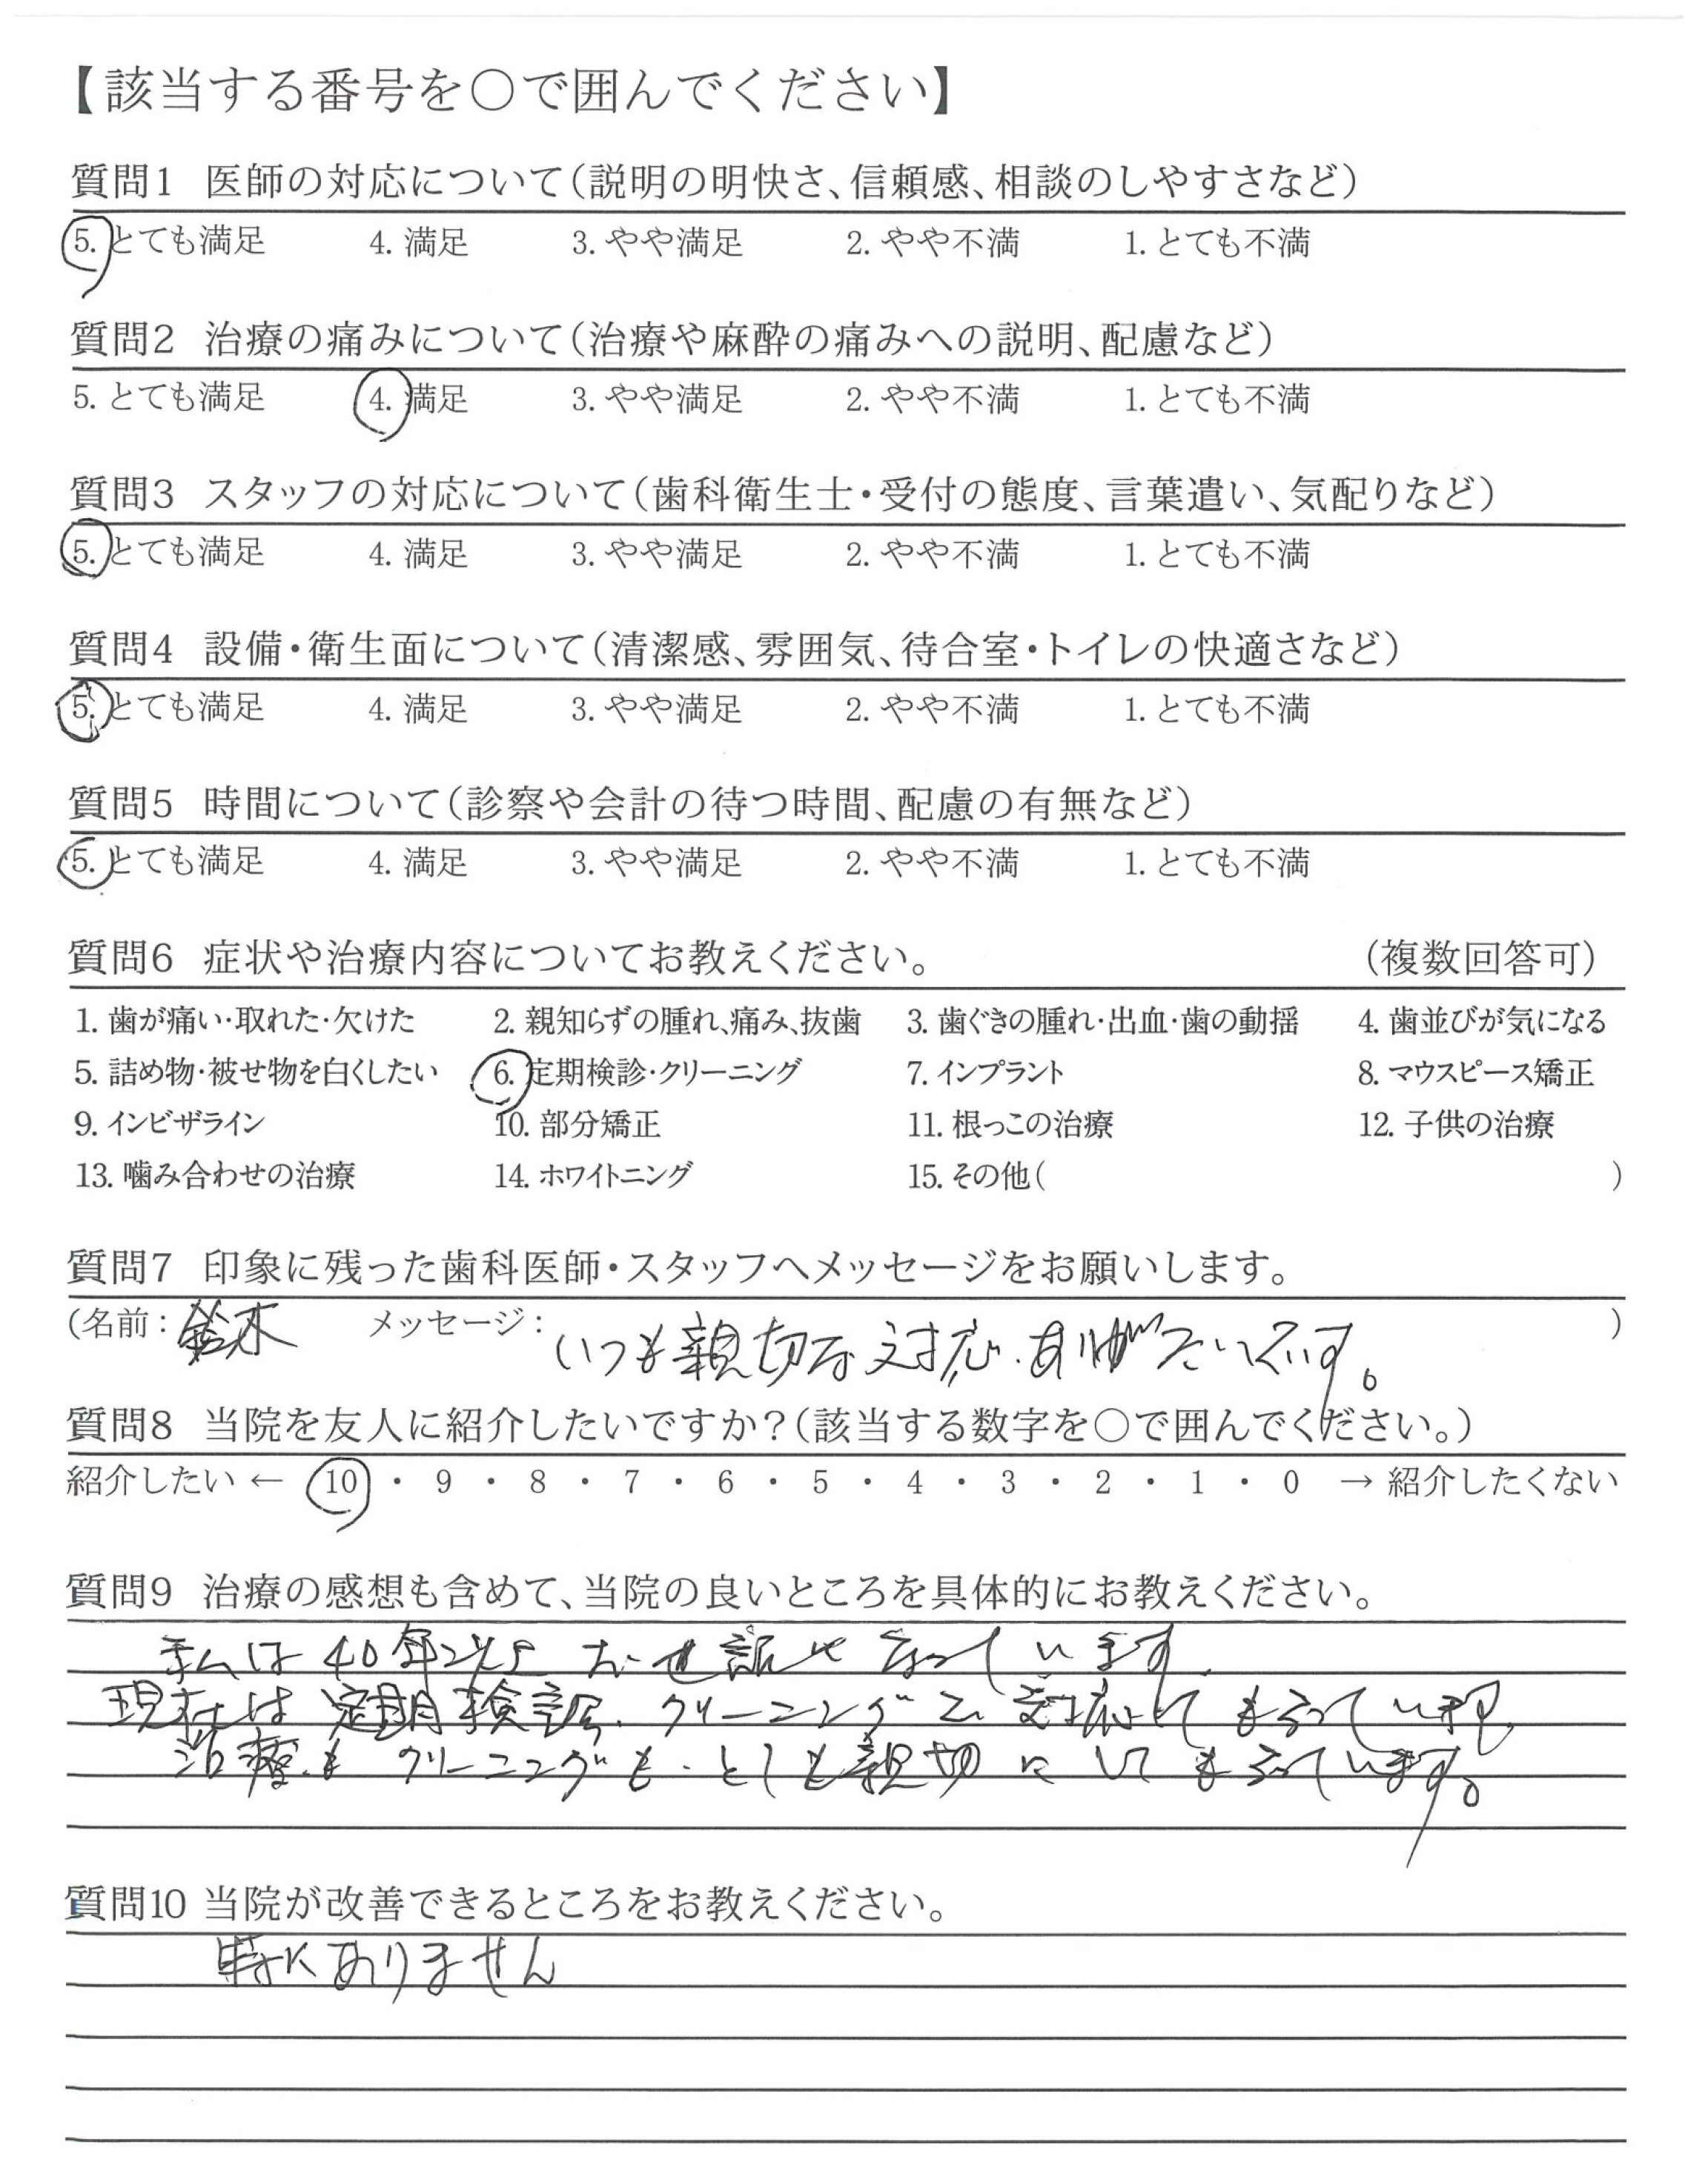 【該当する番号を○で囲んでください】
質問1 医師の対応について（説明の明快さ、信頼感、相談のしやすさなど）
5. とても満足 4. 満足 3. やや満足 2. やや不満 1. とても不満
質問2 治療の痛みについて（治療や麻酔の痛みへの説明、配慮など）
5. とても満足 4. 満足 3. やや満足 2. やや不満 1. とても不満
質問3 スタッフの対応について（歯科衛生士・受付の態度、言葉遣い、気配りなど）
5. とても満足 4. 満足 3. やや満足 2. やや不満 1. とても不満
質問4 設備・衛生面について（清潔感、雰囲気、待合室・トイレの快適さなど）
5. とても満足 4. 満足 3. やや満足 2. やや不満 1. とても不満
質問5 時間について（診察や会計の待つ時間、配慮の有無など）
5. とても満足 4. 満足 3. やや満足 2. やや不満 1. とても不満
質問6 症状や治療内容についてお教えください。 （複数回答可）
1. 歯が痛い・取れた・欠けた 2. 親知らずの腫れ、痛み、抜歯 3. 歯ぐきの腫れ・出血・歯の動揺 4. 歯並びが気になる
5. 詰め物・被せ物を白くしたい 6. 定期検診・クリーニング 7. インプラント 8. マウスピース矯正
9. インビザライン 10. 部分矯正 11. 根っこの治療 12. 子供の治療
13. 噛み合わせの治療 14. ホワイトニング 15. その他（ ）
質問7 印象に残った歯科医師・スタッフへメッセージをお願いします。
（名前：鈴木 メッセージ：いつも親切な対応、ありがたいです。）
質問8 当院を友人に紹介したいですか？（該当する数字を○で囲んでください。）
紹介したい ← 10 ・ 9 ・ 8 ・ 7 ・ 6 ・ 5 ・ 4 ・ 3 ・ 2 ・ 1 ・ 0 → 紹介したくない
質問9 治療の感想も含めて、当院の良いところを具体的にお教えください。
私は40年以上お世話になっています。
現在は定期検診、クリーニングで対応してもらっています。
治療もクリーニングも、とても親切にしてもらっています。
質問10 当院が改善できるところをお教えください。
特にありません